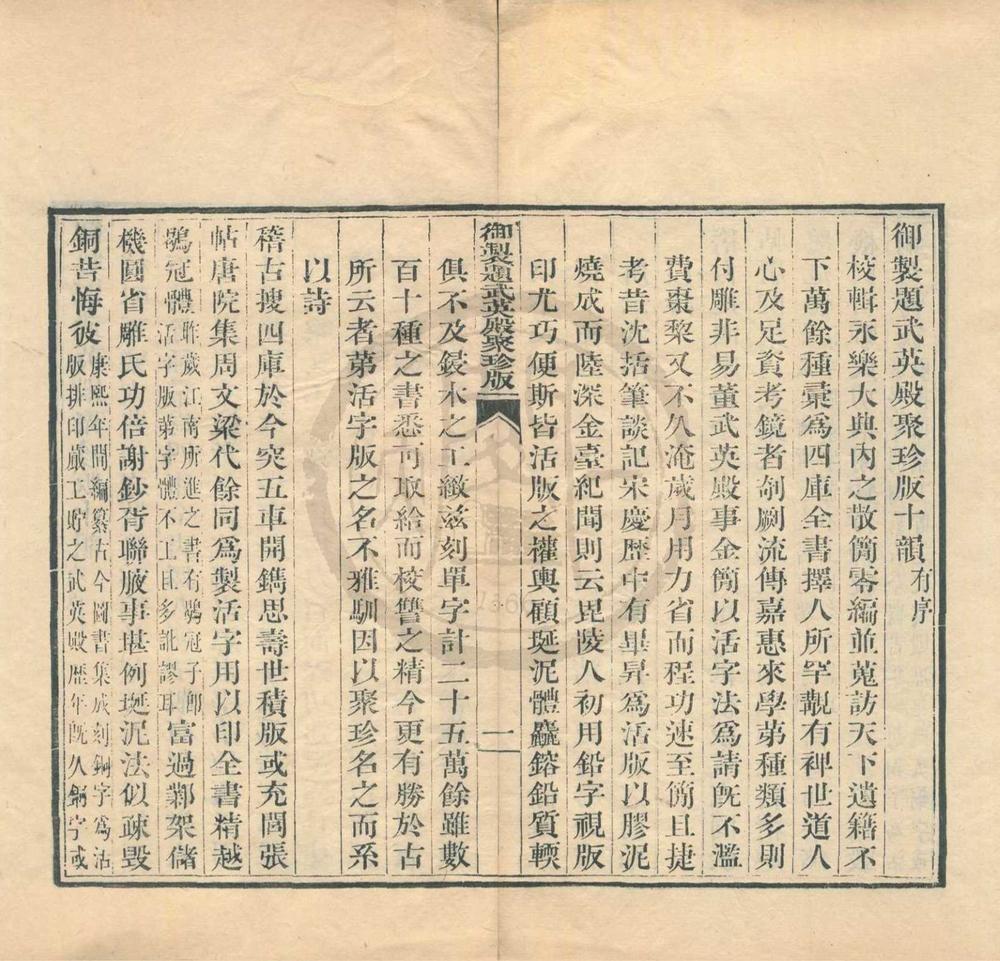 御製題武英殿聚珍版十韻有序
校輯永樂大典內之散簡零編並蒐訪天下遺籍不
下萬餘種彙爲四庫全書擇人所罕覯有裨世道人
心及足資考鏡者剞劂流傳嘉惠來學第種類多則
付雕非易董武英殿事金簡以活字法爲請旣不濫
費棗棃又不久淹歲月用力省而程功速至簡且捷
考昔沈括筆談記宋慶歷中有畢昇爲活版以膠泥
燒成而陸深金臺紀聞則云毘陵人初用鉛字視版
印尤巧便斯皆活版之權輿顧埏泥體麤鎔鉛質輭
御製題武英殿聚珍版 一
俱不及鋟木之工緻茲刻單字計二十五萬餘雖數
百十種之書悉可取給而校讐之精今更有勝於古
所云者第活字版之名不雅馴因以聚珍名之而系
以詩
稽古搜四庫於今突五車開鐫思壽世積版或充閭張
帖唐院集周文梁代餘同爲製活字用以印全書精越
鶡冠體昨歲江南所進之書有鶡冠子卽活字版第字體不工且多訛謬耳富過鄴架儲
機圓省雕氏功倍謝鈔胥聯腋事堪例埏泥法似疎毁
銅昔悔彼康熙年間編纂古今圖書集成刻銅字爲活版排印蕆工貯之武英殿歷年旣久銅字或